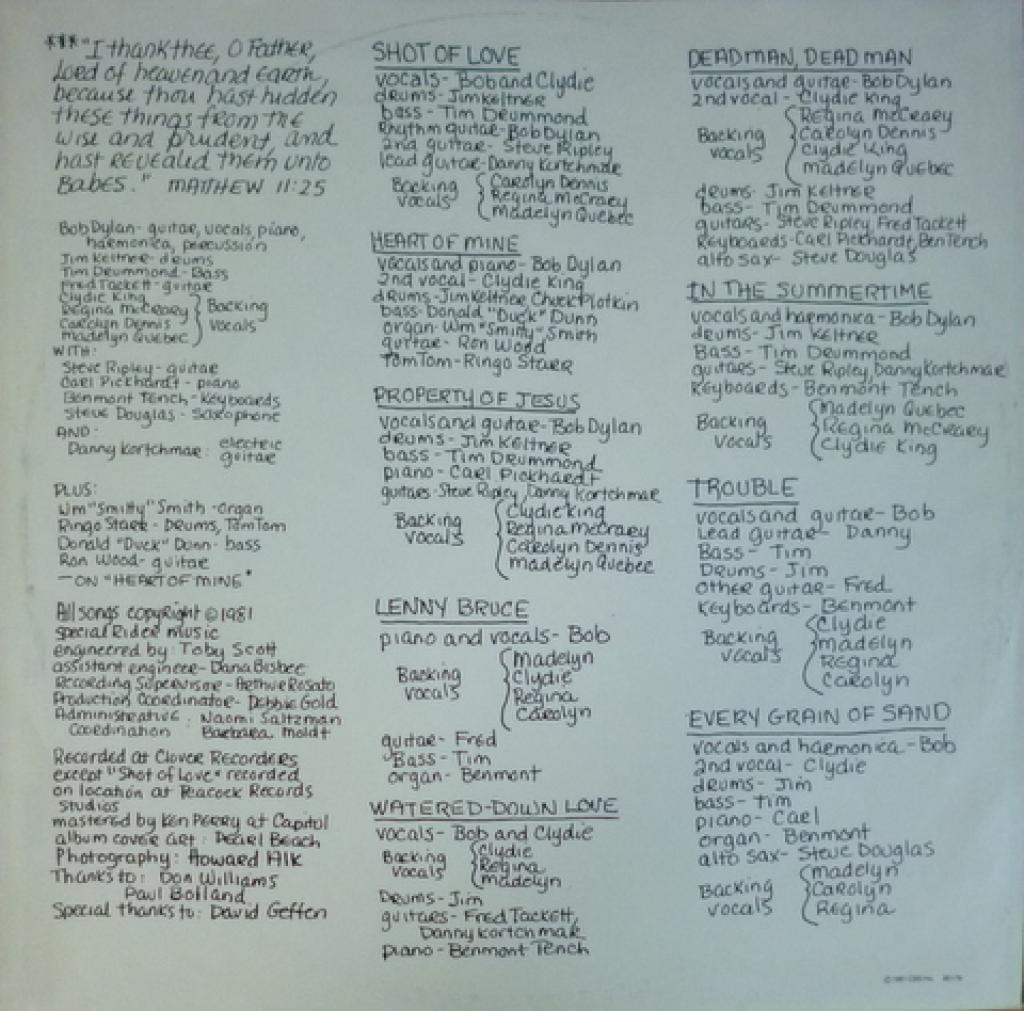 ***"I thank thee, O Father,
Lord of heaven and Earth,
because thou hast hidden
these things from the
wise and prudent, and
hast revealed them unto
Babes." MATTHEW 11:25
Bob Dylan - guitar, vocals, piano,
harmonica, percussion
Jim Keltner - drums
Tim Drummond - Bass
Fred Tackett - guitar
Clydie King
Regina McCreary
Carolyn Dennis
Madelyn Quebec
Backing
Vocals
WITH:
Steve Ripley - guitar
Carl Pickhardt - piano
Benmont Tench - Keyboards
Steve Douglas - Saxophone
AND:
Danny Kortchmar: electric
guitar
PLUS:
Wm "Smitty" Smith - organ
Ringo Starr - Drums, TomTom
Donald "Duck" Dunn - bass
Ron Wood - guitar
— ON "HEART OF MINE"
All songs copyright © 1981
Special Rider Music
engineered by: Toby Scott
assistant engineer - Dana Bisbee
Recording Supervisor - Arthur Rosato
Production Coordinator - Debbie Gold
Administrative : Naomi Saltzman
Coordination Barbara Moldt
Recorded at Clover Recorders
except "Shot of Love" recorded
on location at Peacock Records
Studios
mastered by Ken Perry at Capitol
album cover art: Pearl Beach
Photography: Howard Alk
Thanks to: Don Williams
Paul Bolland
Special thanks to: David Geffen
SHOT OF LOVE
vocals - Bob and Clydie
drums - Jim Keltner
bass - Tim Drummond
Rhythm guitar - Bob Dylan
2nd guitar - Steve Ripley
lead guitar - Danny Kortchmar
Backing
vocals
Carolyn Dennis
Regina McCraey
Madelyn Quebec
HEART OF MINE
vocals and piano - Bob Dylan
2nd vocal - Clydie King
drums - Jim Keltner, Chuck Plotkin
bass - Donald "Duck" Dunn
organ - Wm "Smitty" Smith
guitar - Ron Wood
Tom Tom - Ringo Starr
PROPERTY OF JESUS
vocals and guitar - Bob Dylan
drums - Jim Keltner
bass - Tim Drummond
piano - Carl Pickhardt
guitars - Steve Ripley, Danny Kortchmar
Backing
vocals
Clydie King
Regina McCraey
Carolyn Dennis
madelyn Quebec
LENNY BRUCE
piano and vocals - Bob
Backing
vocals
Madelyn
Clydie
Regina
Carolyn
guitar - Fred
Bass - Tim
organ - Benmont
WATERED-DOWN LOVE
vocals - Bob and Clydie
Backing
vocals
Clydie
Regina
madelyn
Drums - Jim
guitars - Fred Tackett,
Danny Kortchmar
piano - Benmont Tench
DEAD MAN, DEAD MAN
vocals and guitar - Bob Dylan
2nd vocal - Clydie King
Backing
vocals
Regina McCreary
Carolyn Dennis
Clydie King
madelyn Quebec
drums - Jim Keltner
bass - Tim Drummond
guitars - Steve Ripley, Fred Tackett
Keyboards - Carl Pickhardt, Ben Tench
alto sax - Steve Douglas
IN THE SUMMERTIME
vocals and harmonica - Bob Dylan
drums - Jim Keltner
Bass - Tim Drummond
guitars - Steve Ripley, Danny Kortchmar
Keyboards - Benmont Tench
Backing
vocals
Madelyn Quebec
Regina McCreary
Clydie King
TROUBLE
vocals and guitar - Bob
Lead guitar - Danny
Bass - Tim
Drums - Jim
other guitar - Fred
Keyboards - Benmont
Backing
vocals
Clydie
madelyn
Regina
Carolyn
EVERY GRAIN OF SAND
vocals and harmonica - Bob
2nd vocal - Clydie
drums - Jim
bass - Tim
piano - Carl
organ - Benmont
alto sax - Steve Douglas
Backing
vocals
madelyn
Carolyn
Regina